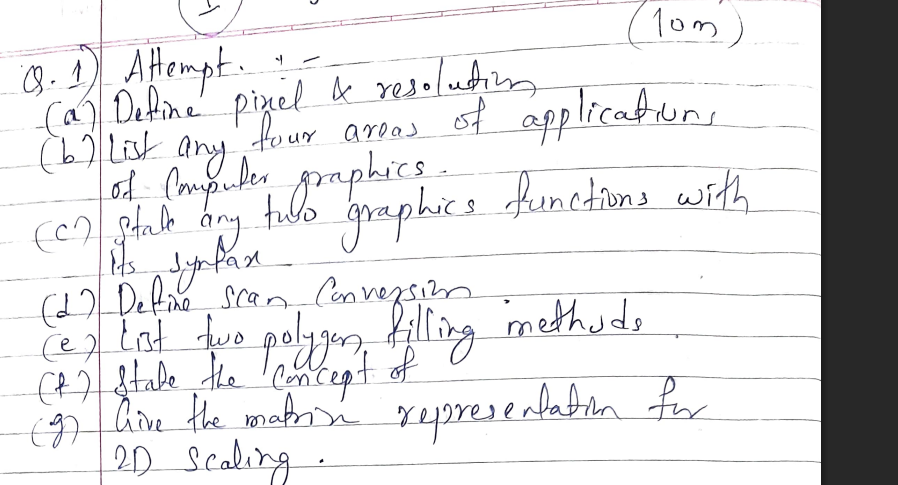 (10m)
Q. 1) Attempt. :-
(a) Define pixel & resolution
(b) List any four areas of applications
of Computer graphics.
(c) State any two graphics functions with
its syntax
(d) Define scan Conversion
(e) List two polygon filling methods.
(f) State the concept of
(g) Give the matrix representation for
2D Scaling.